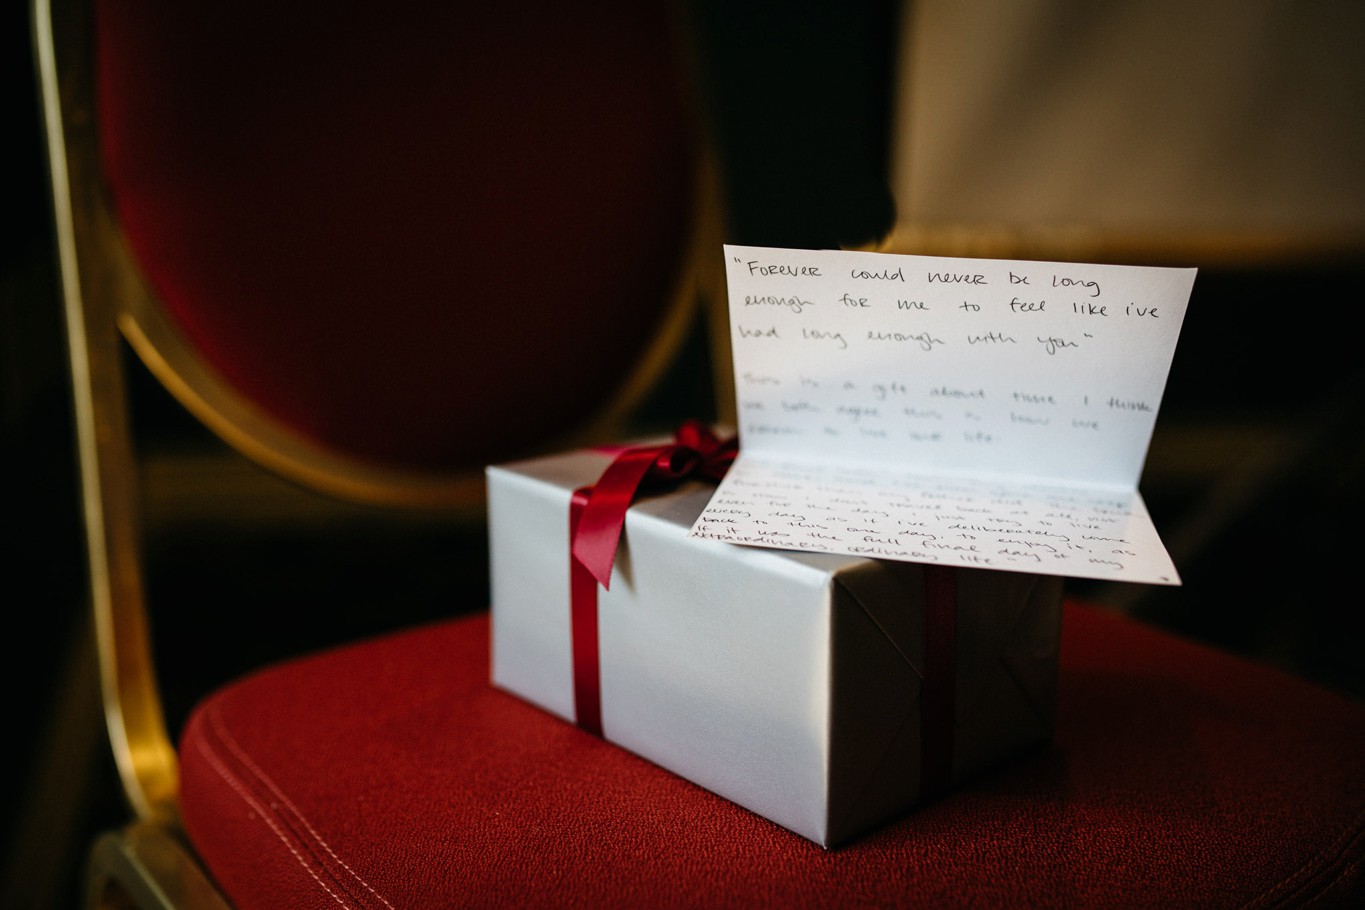 "Forever could never be long
enough for me to feel like i've
had long enough with you"
This is a gift about time I think
we both agree this is how we
to live our life.
even for the day, I just try to live
every day as if I've deliberately come
back to this one day, to enjoy it, as
if it was the full final day of my
extraordinary, ordinary life."